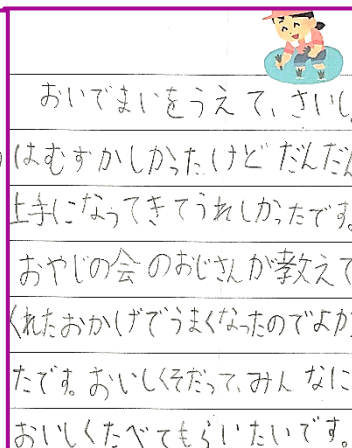 おいでまいをうえて、さいし
はむすかしかったけど だんだん
上手になってきてうれしかったです。
おやじの会のおじさんが教えて
くれたおかげでうまくなったのでよかっ
たです。おいしくそだって、みんなに
おいしくたべてもらいたいです。